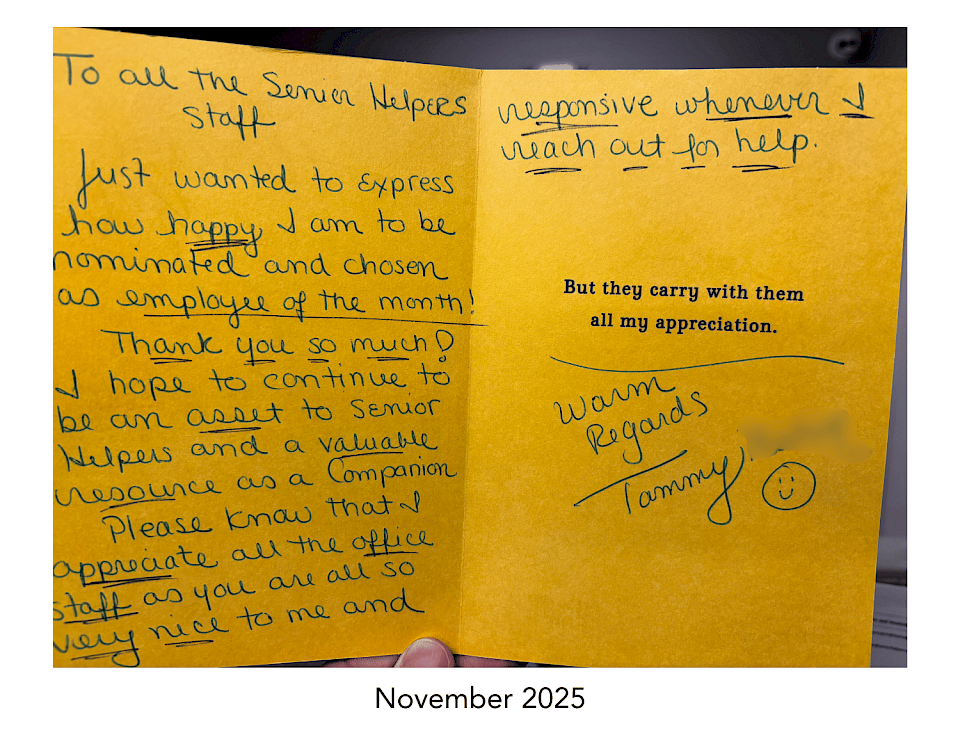 To all the Senior Helpers
Staff
Just wanted to express
how happy I am to be
nominated and chosen
as employee of the month!
Thank you so much!
I hope to continue to
be an asset to Senior
Helpers and a valuable
resource as a Companion
Please know that I
appreciate all the office
staff as you are all so
very nice to me and
responsive whenever I
reach out for help.
But they carry with them
all my appreciation.
Warm
Regards
Tammy
November 2025